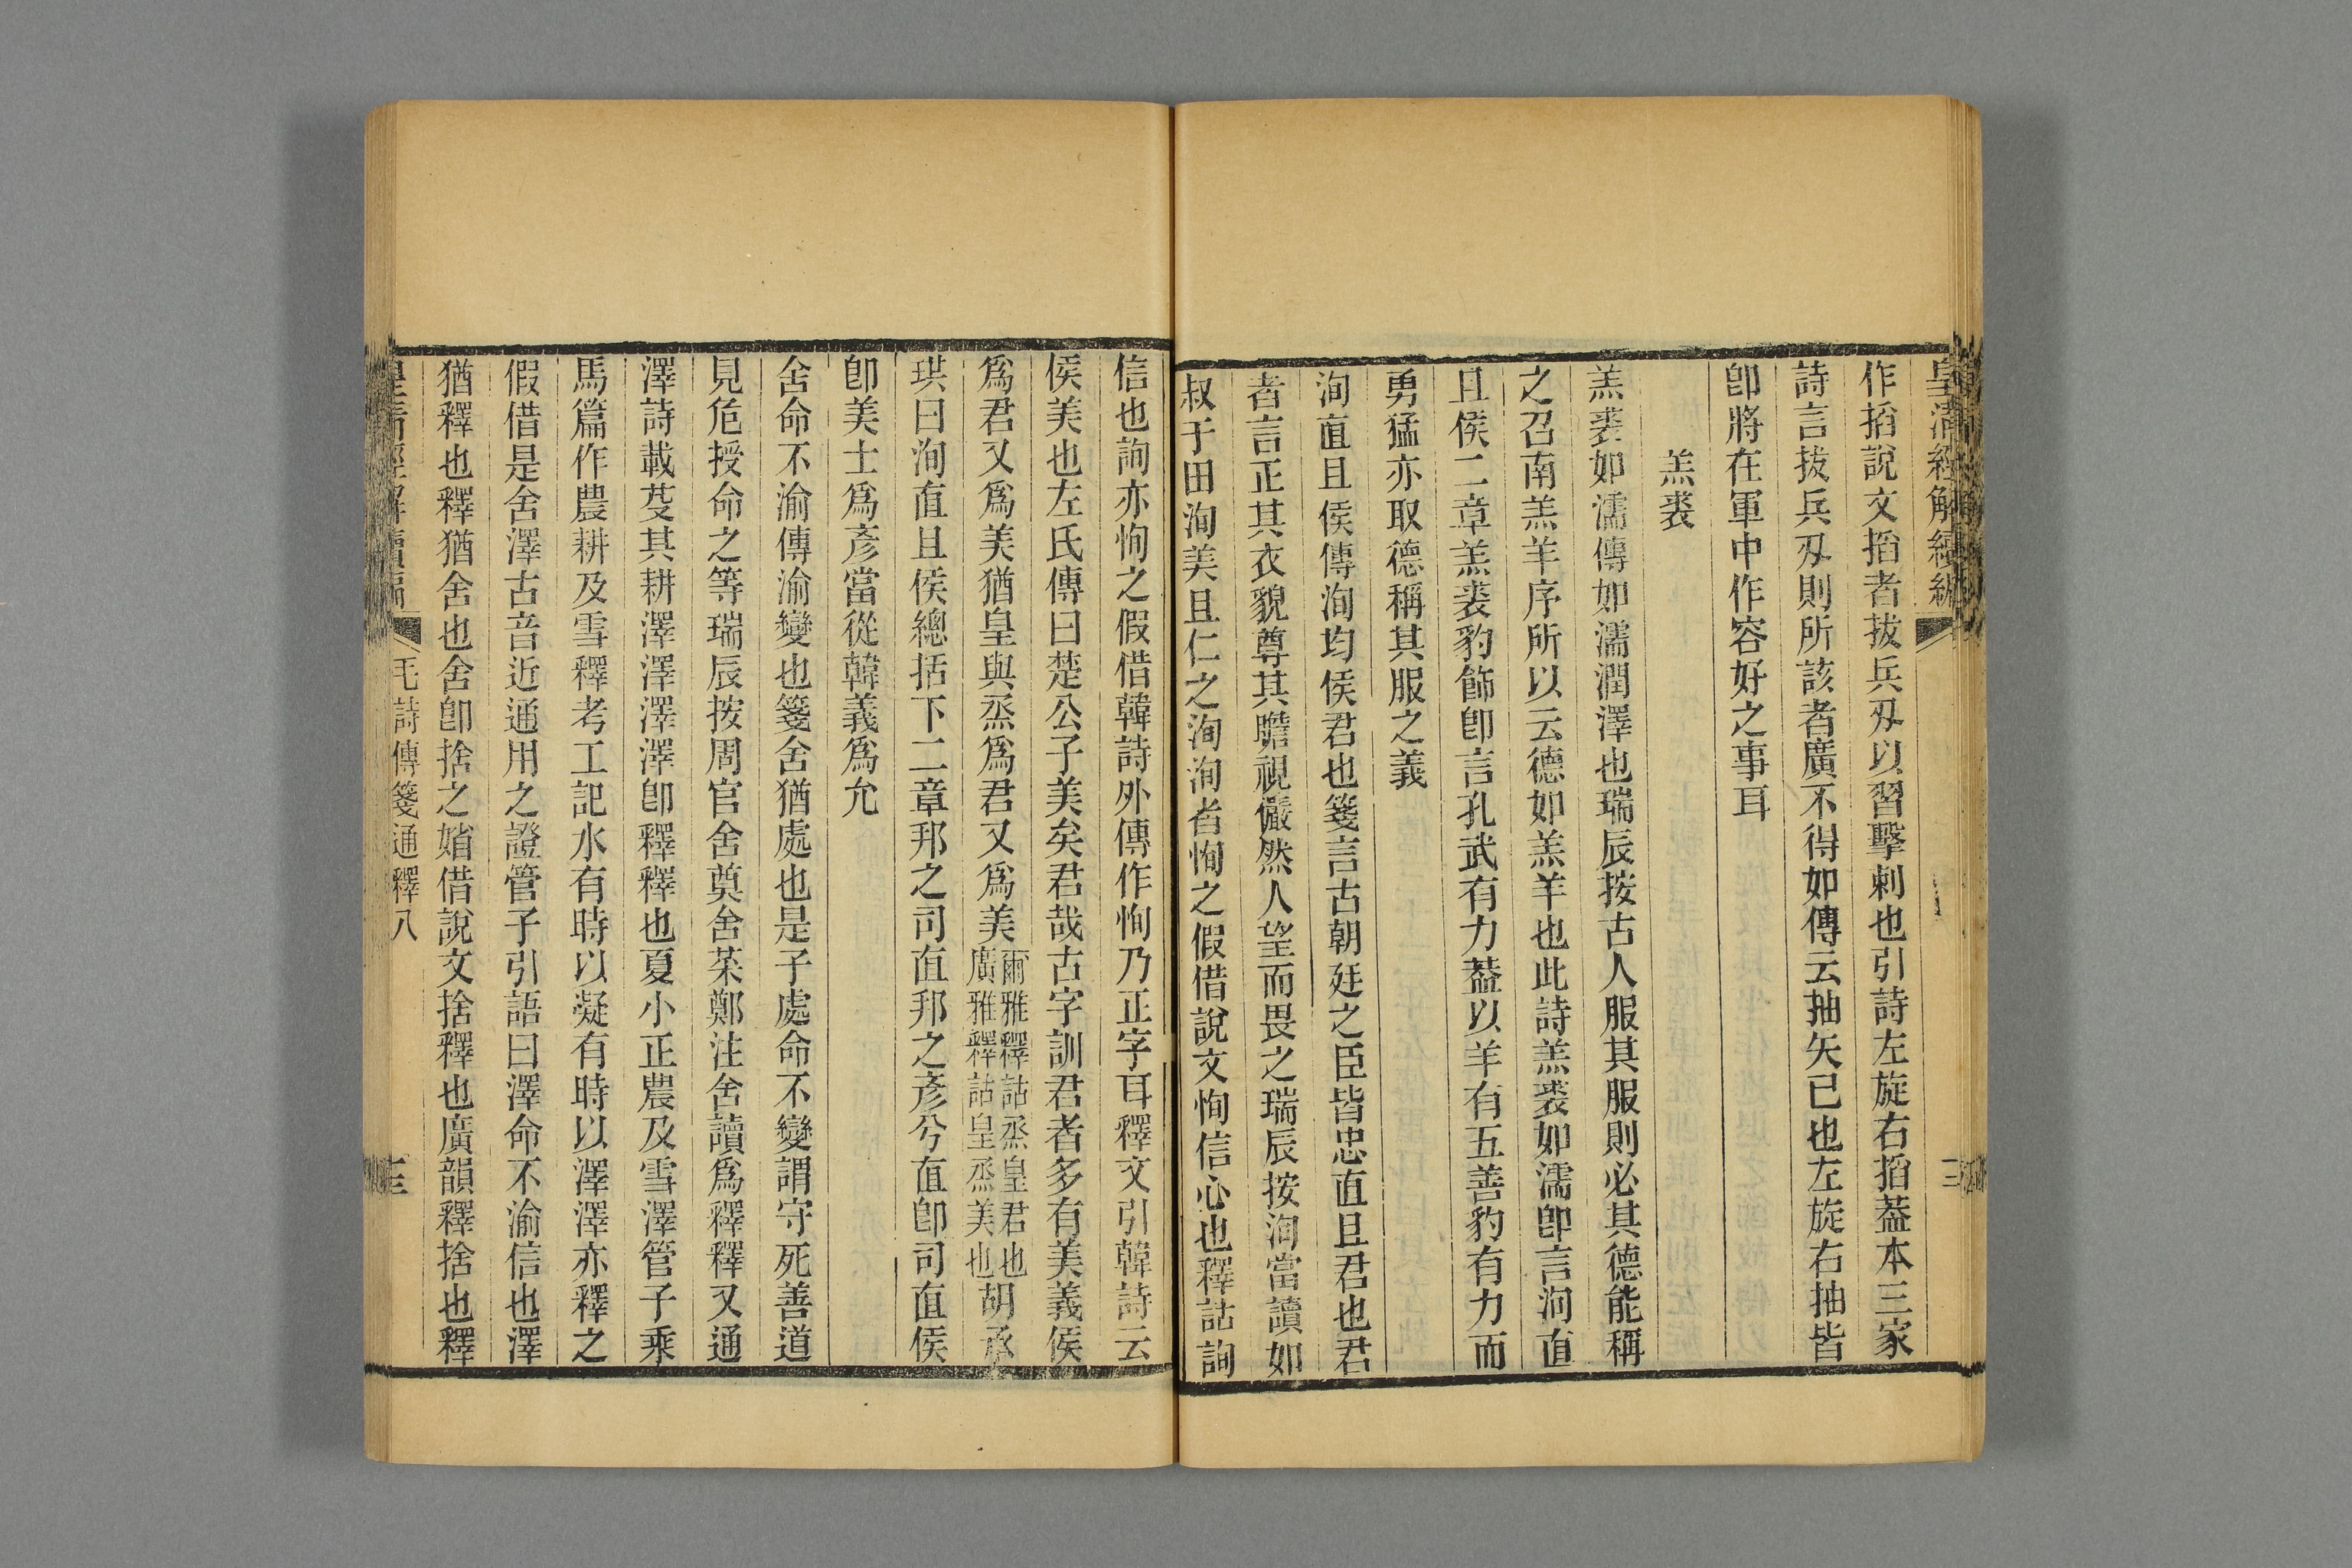 皇清經解續編
作搯說文搯者拔兵刃以習擊刺也引詩左旋右搯葢本三家
詩言拔兵刃則所該者廣不得如傳云抽矢已也左旋右抽皆
卽將在軍中作容好之事耳
羔裘
羔裘如濡傳如濡潤澤也瑞辰按古人服其服則必其德能稱
之召南羔羊序所以云德如羔羊也此詩羔裘如濡卽言洵直
且侯二章羔裘豹飾卽言孔武有力葢以羊有五善豹有力而
勇猛亦取德稱其服之義
洵直且侯傳洵均侯君也箋言古朝廷之臣皆忠直且君也君
者言正其衣貌尊其瞻視儼然人望而畏之瑞辰按洵當讀如
叔于田洵美且仁之洵洵者恂之假借說文恂信心也釋詁詢
信也詢亦恂之假借韓詩外傳作恂乃正字耳釋文引韓詩云
侯美也左氏傳曰楚公子美矣君哉古字訓君者多有美義侯
爲君又爲美猶皇與烝爲君又爲美爾雅釋詁烝皇君也廣雅釋詁皇烝美也胡承
珙曰洵直且侯總括下二章邦之司直邦之彥兮直卽司直侯
卽美士爲彥當從韓義爲允
舍命不渝傳渝變也箋舍猶處也是子處命不變謂守死善道
見危授命之等瑞辰按周官舍奠舍菜鄭注舍讀爲釋釋又通
澤詩載芟其耕澤澤澤澤卽釋釋也夏小正農及雪澤管子乘
馬篇作農耕及雪釋考工記水有時以凝有時以澤澤亦釋之
假借是舍澤古音近通用之證管子引語曰澤命不渝信也澤
猶釋也釋猶舍也舍卽捨之媘借說文捨釋也廣韻釋捨也釋
皇清經解續編 毛詩傳箋通釋八